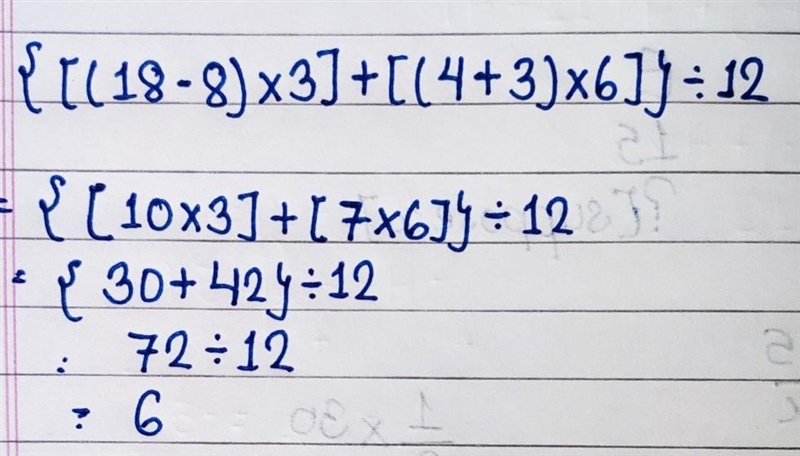 {[(18-8)×3]+[(4+3)×6]}÷12
= {[10×3]+[7×6]}÷12
= {30+42}÷12
: 72÷12
= 6